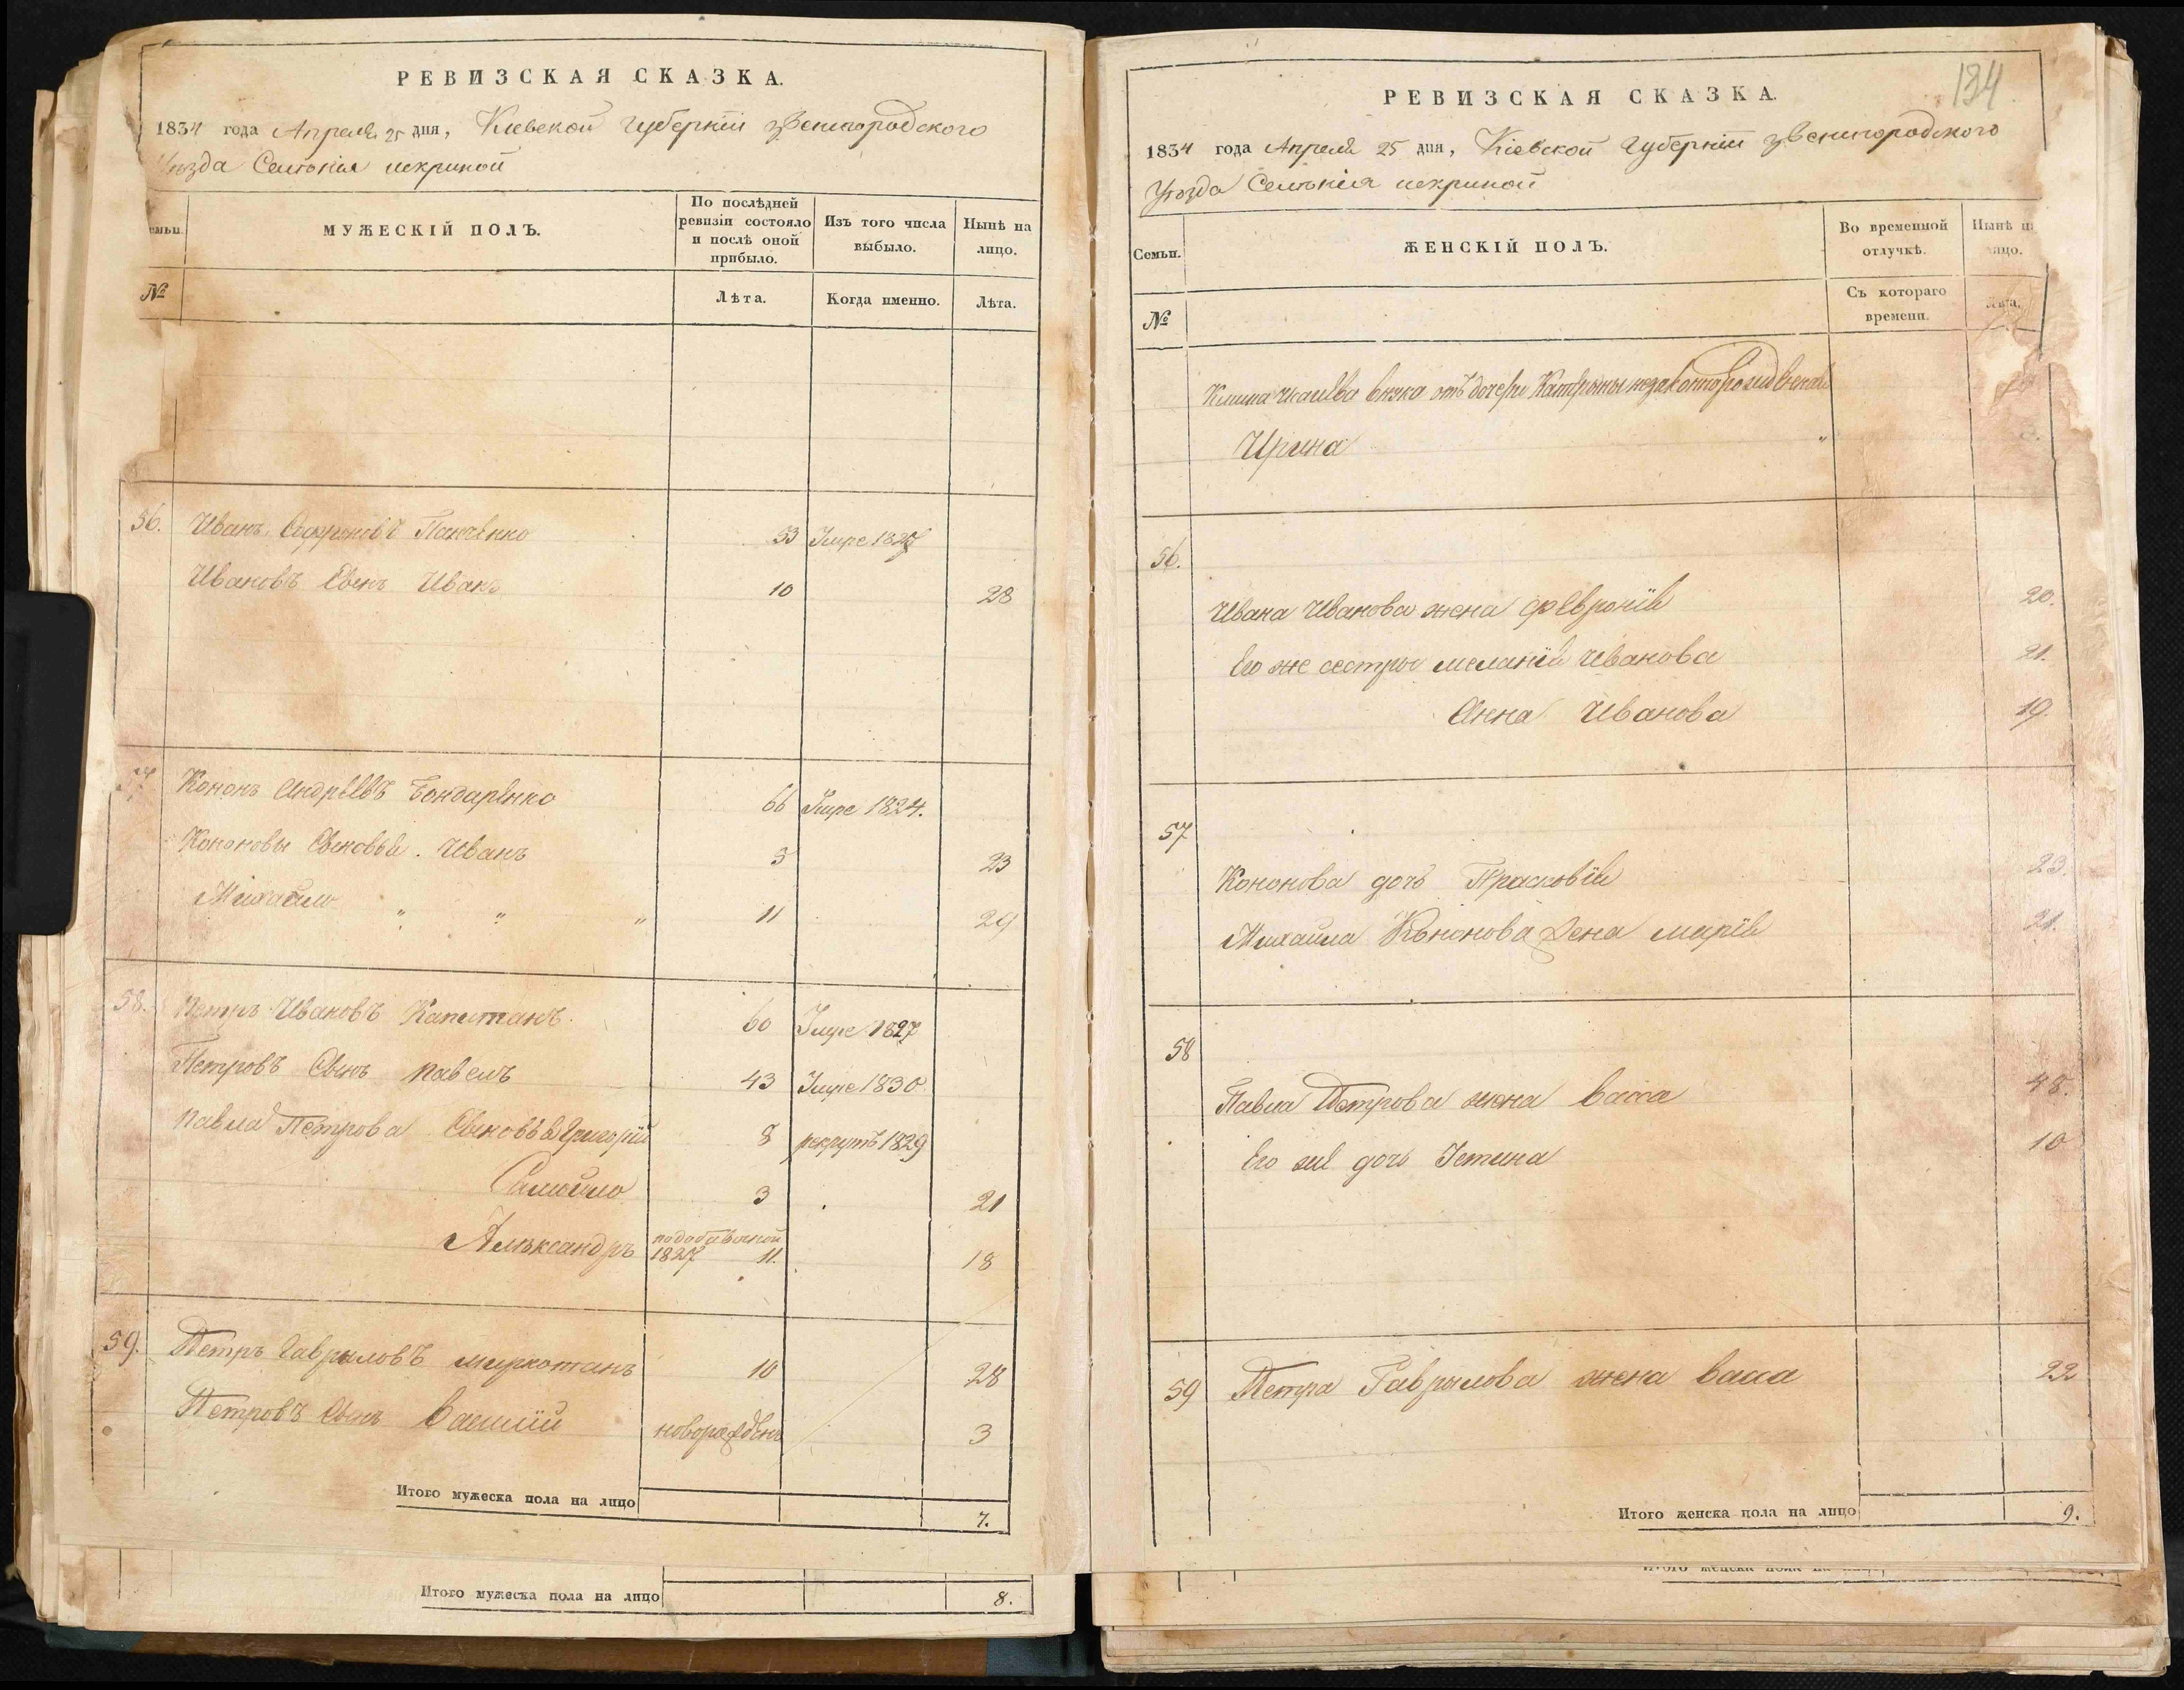 РЕВИЗСКАЯ СКАЗКА.
1834 года Апреля 25 дня, Киевской Губернiи Звенигородского
уезда Селенiя искриной
МУЖЕСКІЙ ПОЛЪ.
По послѣдней ревизіи состояло и послѣ оной прибыло.
Изъ того числа выбыло.
Нынѣ на лицо.
№
Лѣта.
Когда именно.
Лѣта.
56. Иванъ Софроновъ Панченко 33 Умре 1827
Ивановъ Сынъ Иванъ 10 28
Кононъ Андреевъ Бондаренко 66 Умре 1824.
Кононовы Сыновья. Иванъ 5 23
Михайло " " " 11 29
58. Петръ Ивановъ Капитанъ. 60 Умре 1827
Петровъ Сынъ Павелъ 43 Умре 1830
Павла Петрова Сыновья Григорiй 8 рекрутъ 1829
Самойло 3 21
Александръ 1827 11. 18
59. Петръ Гавриловъ 10 28
Петровъ Сынъ Василiй новорожденъ 3
Итого мужеска пола на лицо 7.
Итого мужеска пола на лицо 8.
134
РЕВИЗСКАЯ СКАЗКА.
1834 года Апреля 25 дня, Кіевской Губернiи Звенигородского
Уезда Селенiя искриной
Семьи.
ЖЕНСКІЙ ПОЛЪ.
Во временной отлучкѣ.
Нынѣ на лицо.
№
Съ котораго времени.
Лѣта.
внука отъ дочери Катрыны незаконнорожденная
Ирина "
56.
Ивана Иванова жена Февронiя 20.
Его же сестры меланiя Иванова 21.
Анна Иванова 19.
57
Кононова дочь Прасковiя 23.
Михайла Кононова жена марiя 21.
58
Павла Петрова жена васса 48.
Его же дочь Устина 10
59 Петра Гаврылова жена васса 22
Итого женска пола на лицо 9.